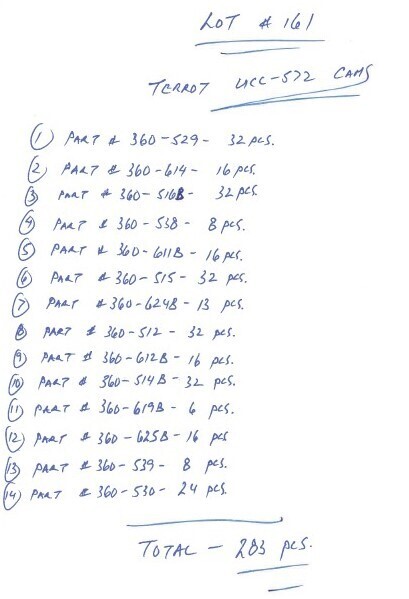 LOT # 161
TERROT UCC-572 CAMS
① PART # 360-529- 32 pcs.
② PART # 360-614- 16 pcs.
③ PART # 360-516B- 32 pcs.
④ PART # 360-538- 8 pcs.
⑤ PART # 360-611B- 16 pcs.
⑥ PART # 360-515- 32 pcs.
⑦ PART # 360-624B- 13 pcs.
⑧ PART # 360-512- 32 pcs.
⑨ PART # 360-612B- 16 pcs.
⑩ PART # 360-514B- 32 pcs.
⑪ PART # 360-619B- 6 pcs.
⑫ PART # 360-625B- 16 pcs
⑬ PART # 360-539- 8 pcs.
⑭ PART # 360-530- 24 pcs.
TOTAL - 283 pcs.